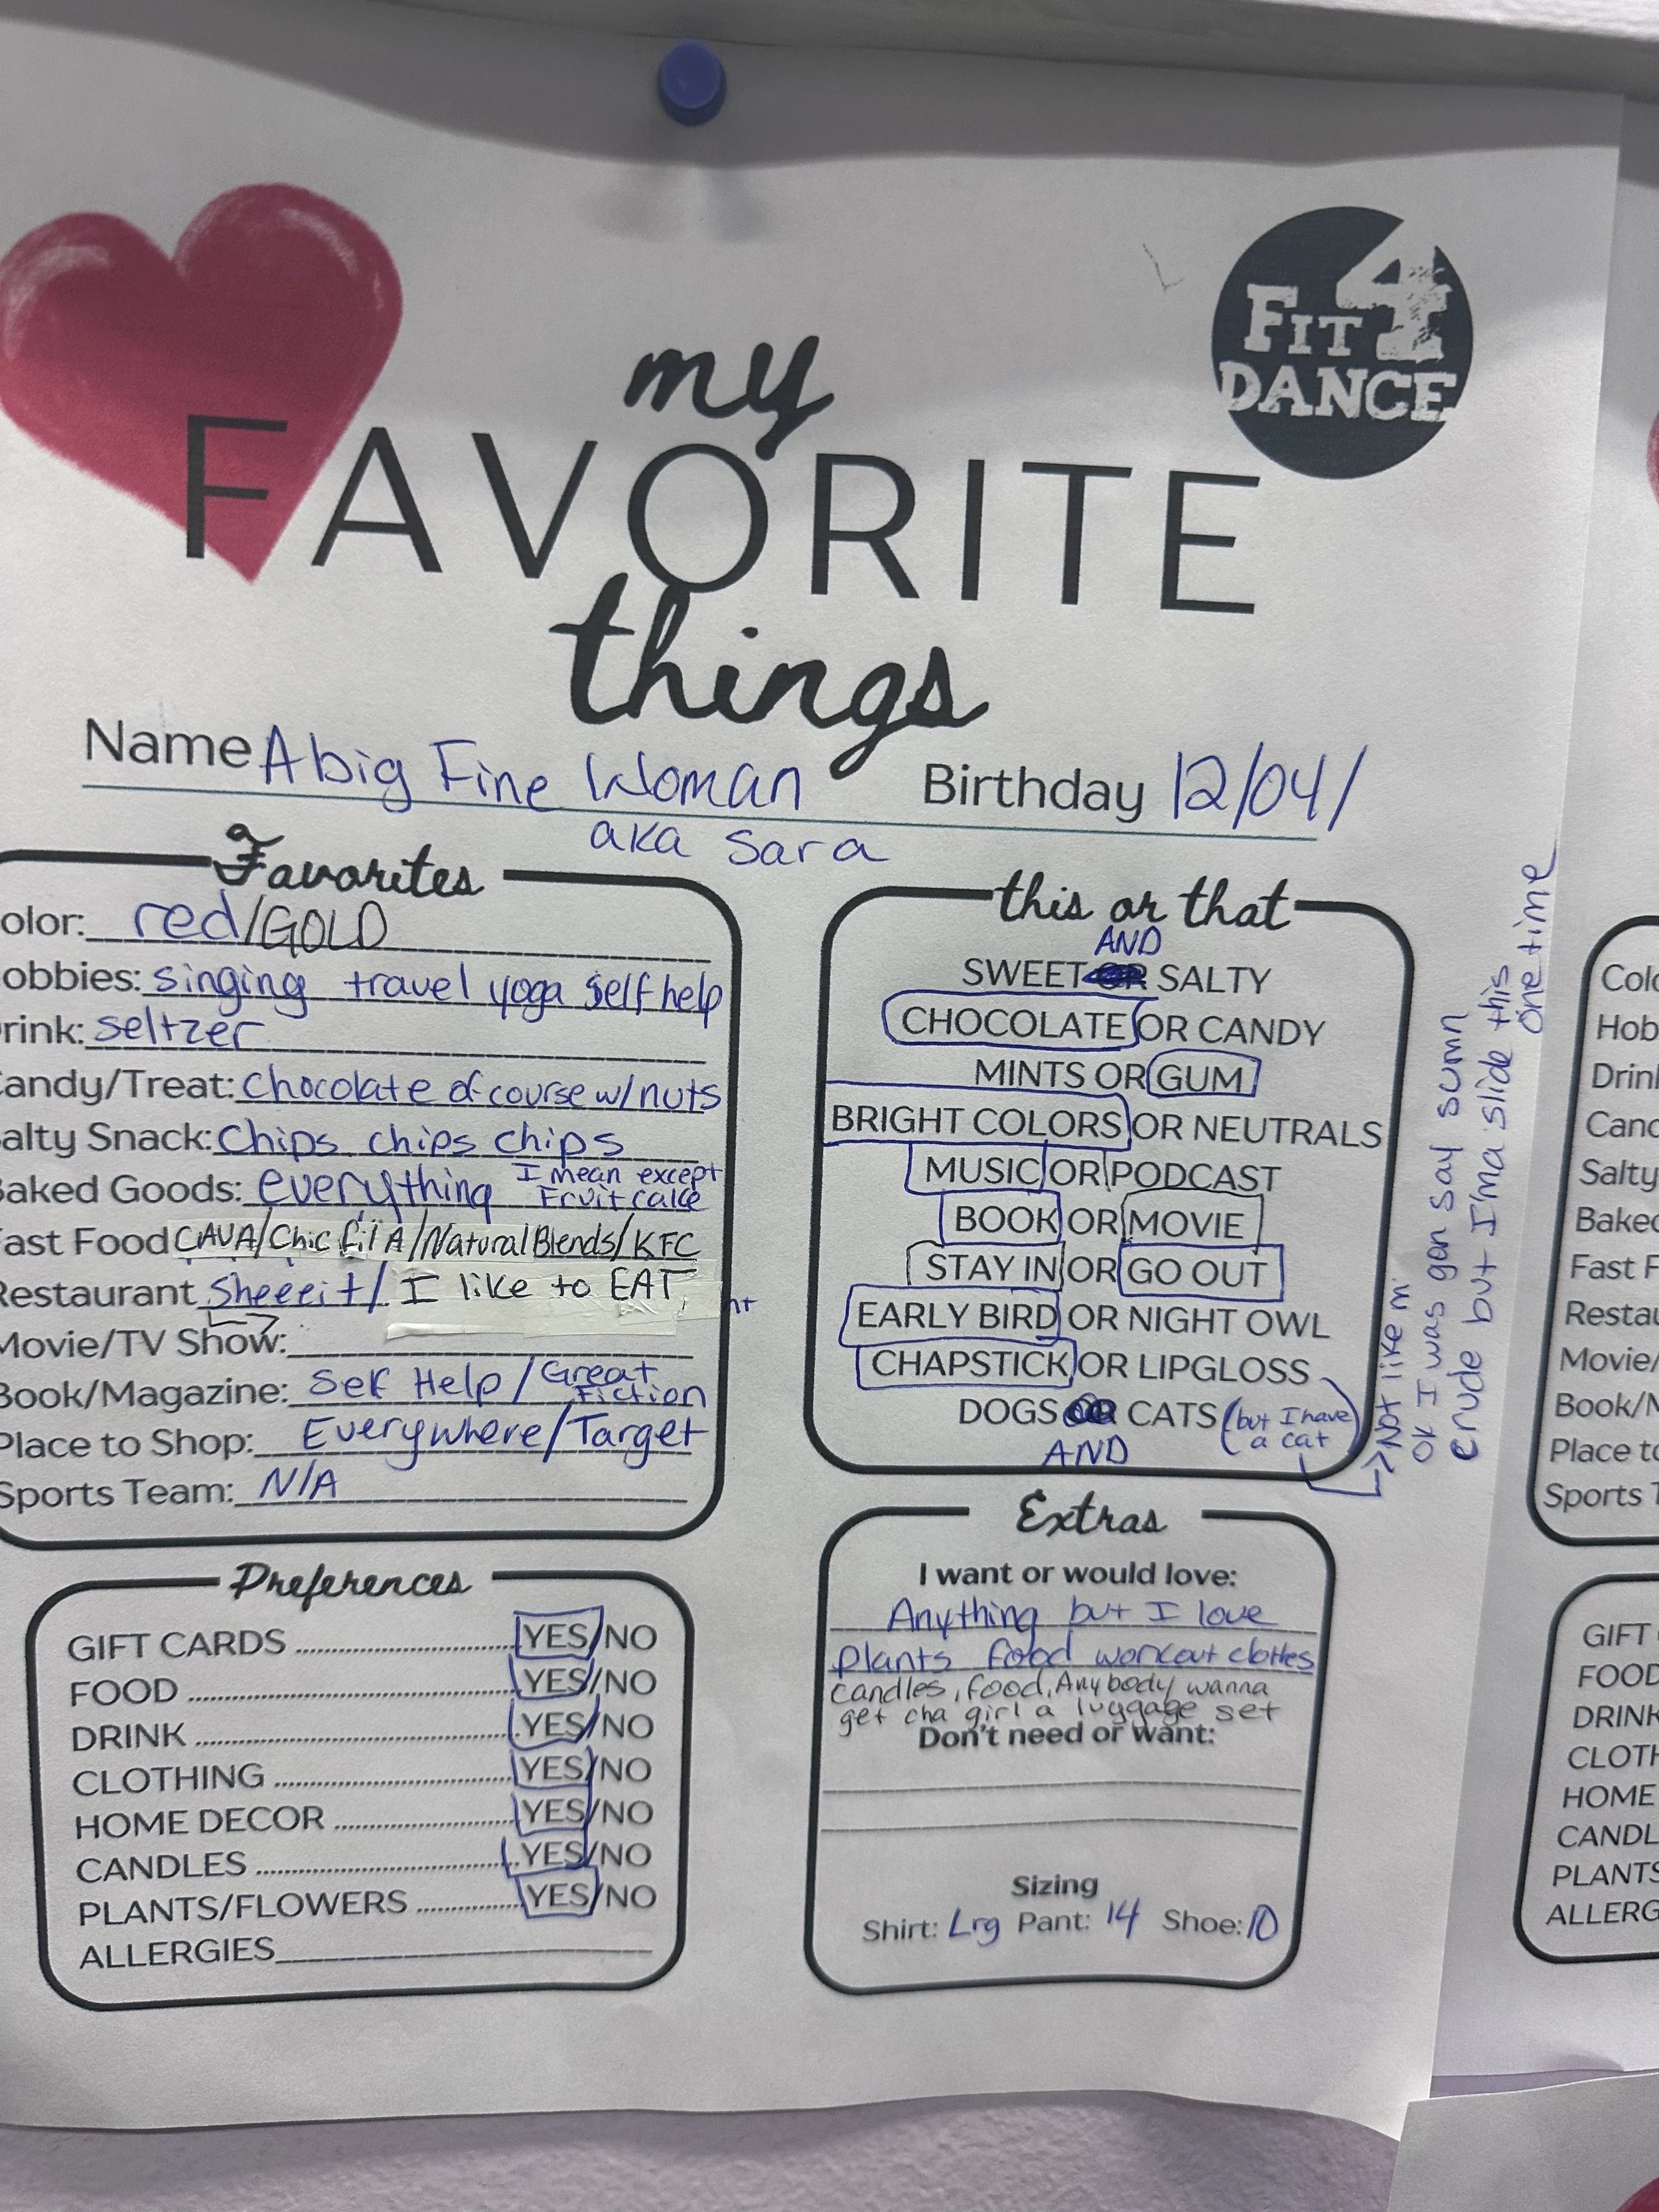 FIT 4
DANCE
my
FAVORITE
things
Name A big Fine Woman Birthday 12/04/
aka Sara
Favorites
olor: red/GOLD
obbies: singing travel yoga self help
rink: seltzer
Candy/Treat: Chocolate of course w/nuts
alty Snack: Chips chips chips
Baked Goods: everything I mean except
Fruit cake
ast Food CAVA/Chic fil A/Natural Blends/KFC
Restaurant Sheeeit/ I like to EAT
Movie/TV Show:
Book/Magazine: Self Help / Great
Fiction
Place to Shop: Everywhere/Target
Sports Team: N/A
this or that
AND
SWEET SALTY
CHOCOLATE OR CANDY
MINTS OR GUM
BRIGHT COLORS OR NEUTRALS
MUSIC OR PODCAST
BOOK OR MOVIE
STAY IN OR GO OUT
EARLY BIRD OR NIGHT OWL
CHAPSTICK OR LIPGLOSS
DOGS OR CATS (but I have
a cat)
AND
Not like m
OK I was gon say sumn
crude but I'ma slide this
one time
Preferences
GIFT CARDS YES/NO
FOOD YES/NO
DRINK YES/NO
CLOTHING YES/NO
HOME DECOR YES/NO
CANDLES YES/NO
PLANTS/FLOWERS YES/NO
ALLERGIES
Extras
I want or would love:
Anything but I love
plants food workout clothes
candles, food, Anybody wanna
get cha girl a luggage set
Don't need or want:
Sizing
Shirt: Lrg Pant: 14 Shoe: 10
Colo
Hob
Drin
Canc
Salty
Baked
Fast F
Restau
Movie/
Book/M
Place to
Sports T
GIFT
FOOD
DRINK
CLOTH
HOME
CANDL
PLANTS
ALLERG